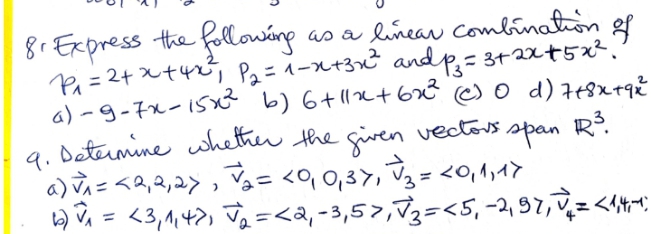 8. Express the following as a linear combination of
p₁ = 2+x+4x², p₂ = 1-x+3x² and p₃ = 3+2x+5x².
a) -9-7x-15x² b) 6+11x+6x² (c) 0 d) 7+8x+9x²
9. Determine whether the given vectors span ℝ³.
a) v⃗₁ = <2,2,2>, v⃗₂ = <0,0,3>, v⃗₃ = <0,1,1>
b) v⃗₁ = <3,1,4>, v⃗₂ = <2,-3,5>, v⃗₃ = <5,-2,9>, v⃗₄ = <1,4,-1>